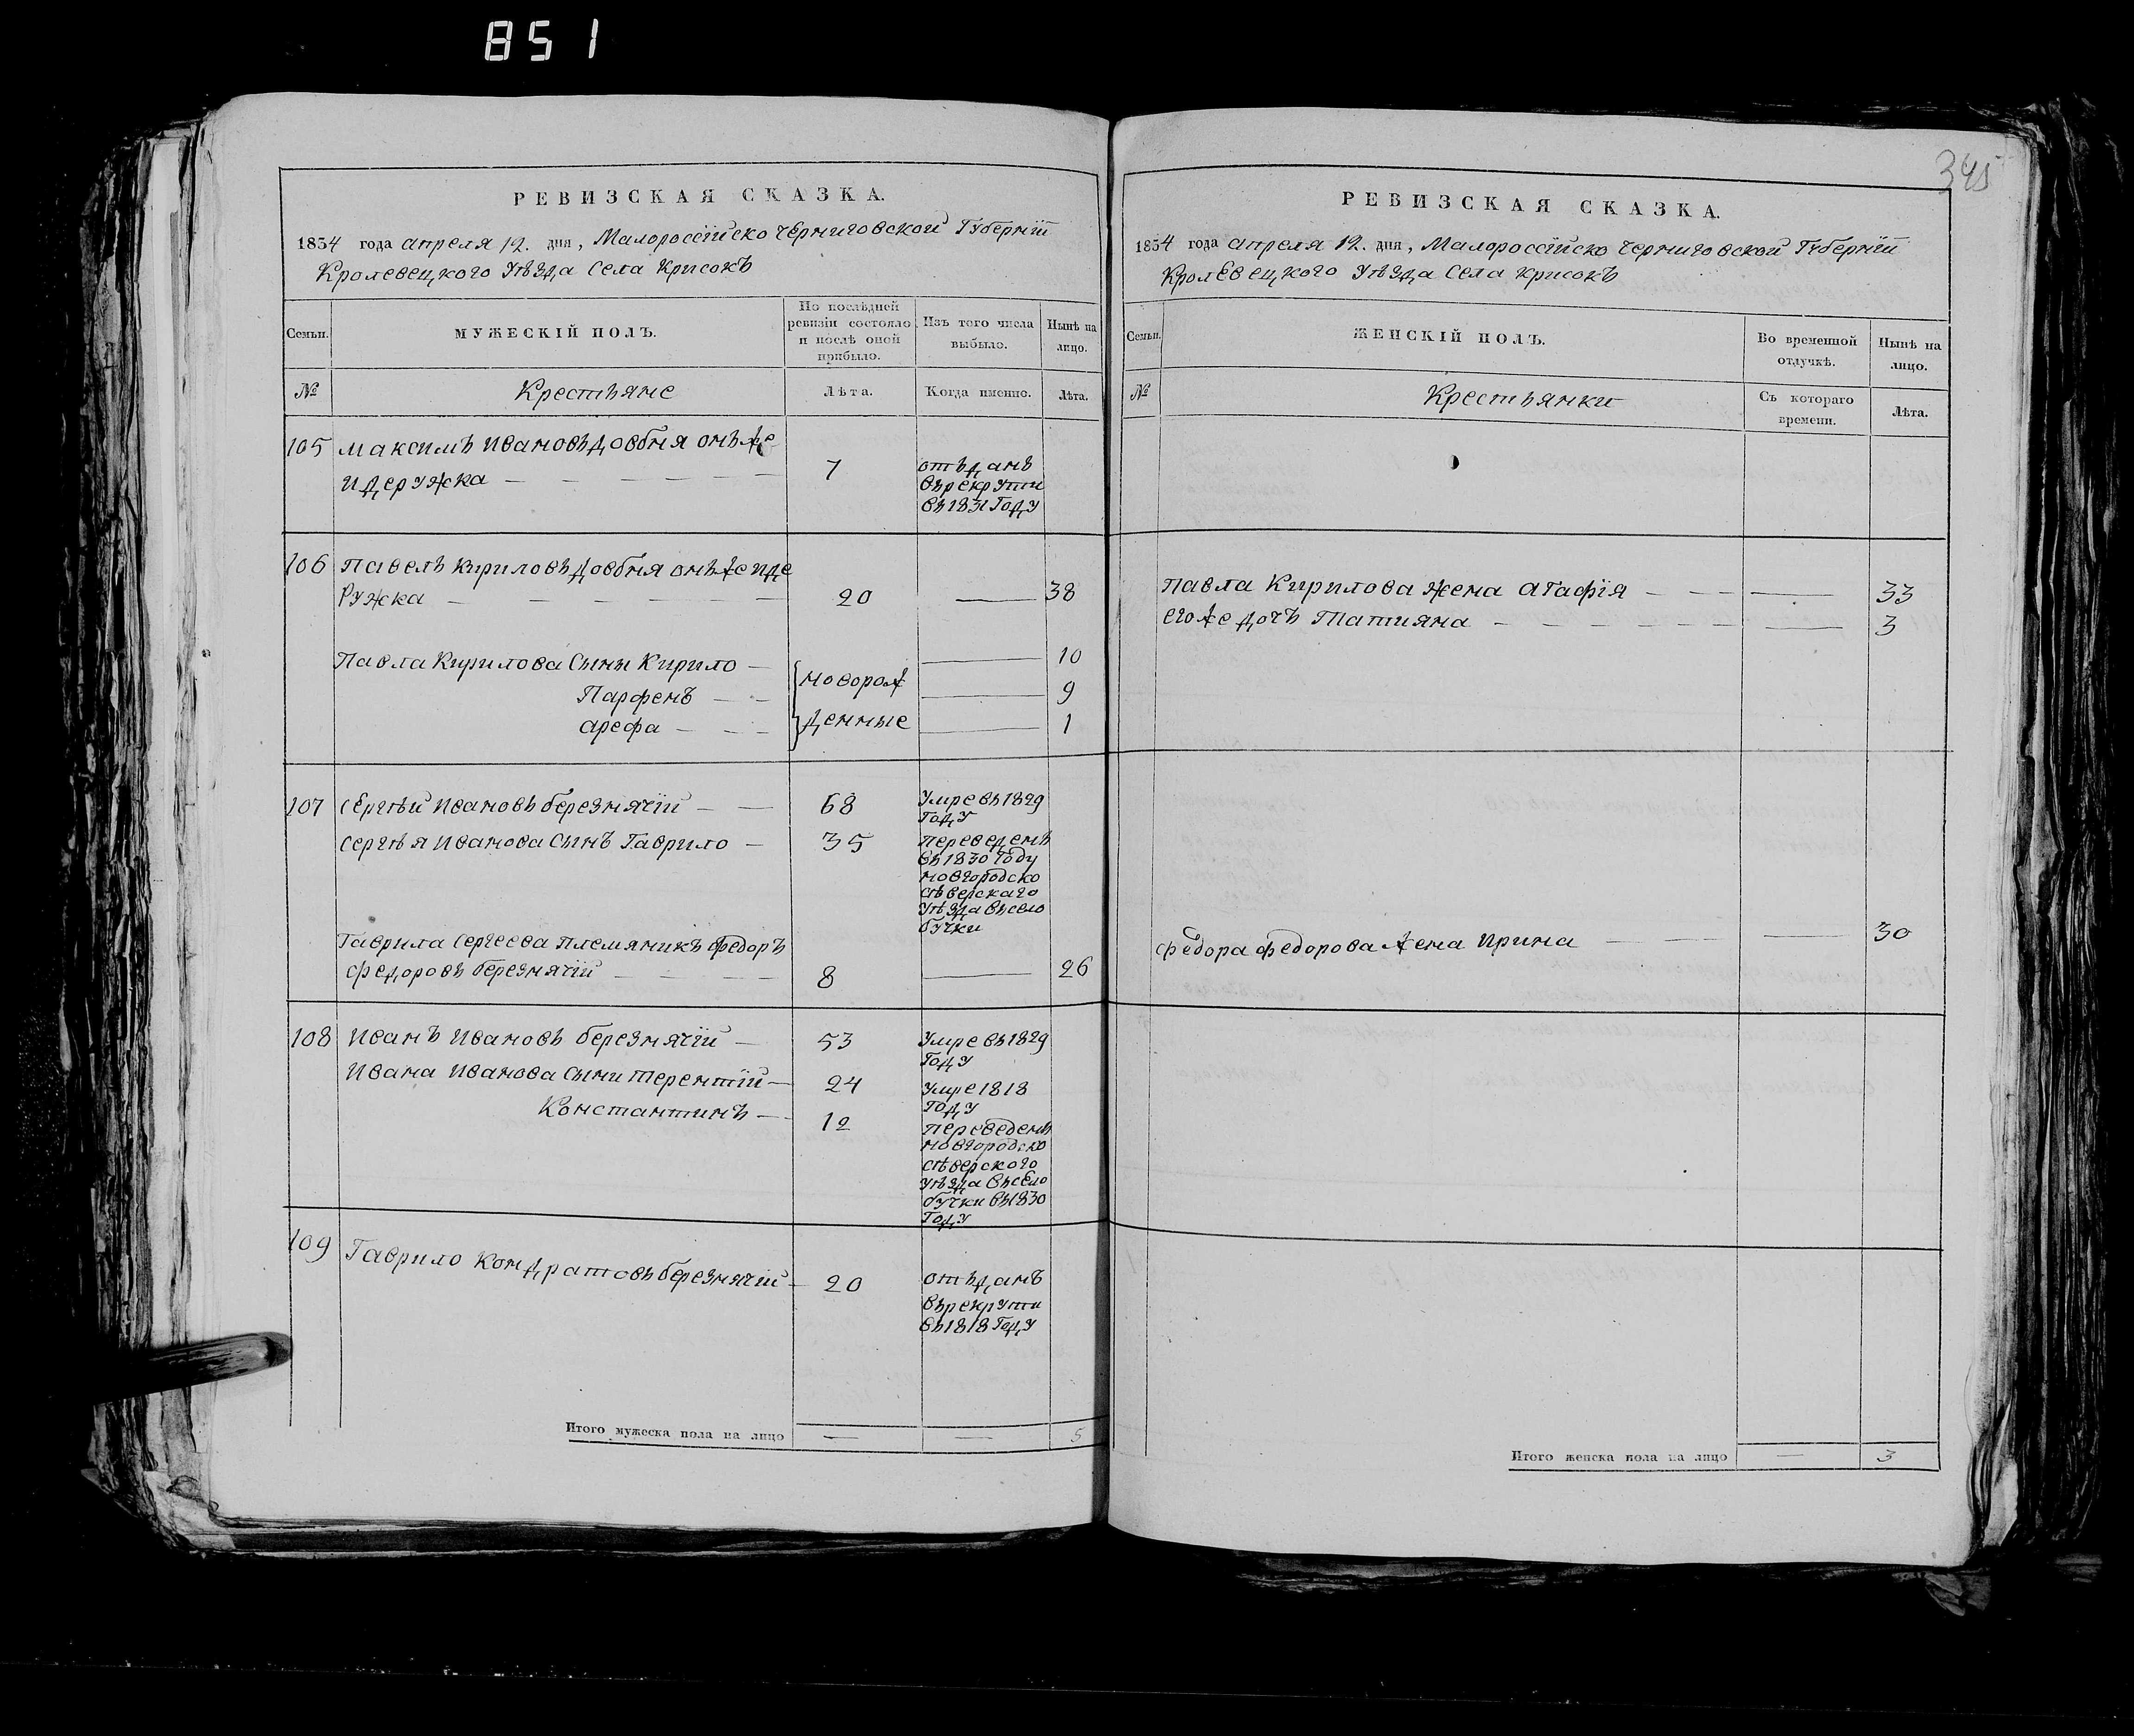 851
345
РЕВИЗСКАЯ СКАЗКА.
1834 года апреля 12. дня, Малороссійско Черниговской Губерніи
Кролевецкого Уѣзда Села Крисокъ
Семьи.
МУЖЕСКІЙ ПОЛЪ.
По послѣдней
ревизіи состояло
и послѣ оной
прибыло.
Изъ того числа
выбыло.
Нынѣ на
лицо.
№
Крестьяне
Лѣта.
Когда именно.
Лѣта.
105 Максимъ Ивановъ Довбня онъже
и Деружка — 7 отъданъ
въ рекрути
въ 1831 Году
106 Павелъ Кириловъ Довбня онъже и Де
Ружка — 20 — 38
Павла Кирилова Сыны Кирило — новорож — 10
Парфенъ — — 9
Арефа — денные — 1
107 Сергѣй Ивановъ березнячій — 68 Умре въ 1829
Году
Сергѣя Иванова Сынъ Гаврило — 35 переведенъ
въ 1830 году
новгородско
сѣверскаго
Уѣзда въ село
бучки
Гаврила Сергеева племяникъ Федоръ
Федоровъ березнячій — 8 — 26
108 Иванъ Ивановъ березнячій — 53 Умре въ 1829
Году
Ивана Иванова Сыни Терентій — 24 Умре 1818
Году
Константинъ — 12 переведенъ
новгородско
сѣверского
Уѣзда въ село
бучки въ 1830
Году
109 Гаврило Кондратовъ березнячій — 20 отъданъ
въ рекрути
въ 1818 Году
Итого мужеска пола на лицо — — 5
РЕВИЗСКАЯ СКАЗКА.
1834 года апреля 12. дня, Малороссійско Черниговской Губерніи
Кролевецкого Уѣзда Села Крисокъ
Семьи.
ЖЕНСКІЙ ПОЛЪ.
Во временной
отлучкѣ.
Нынѣ на
лицо.
№
Крестьянки
Съ котораго
времени.
Лѣта.
Павла Кирилова жена Агафія — — 33
егоже дочь Татияна — — 3
Федора Федорова жена Ирина — — 30
Итого женска пола на лицо — 3